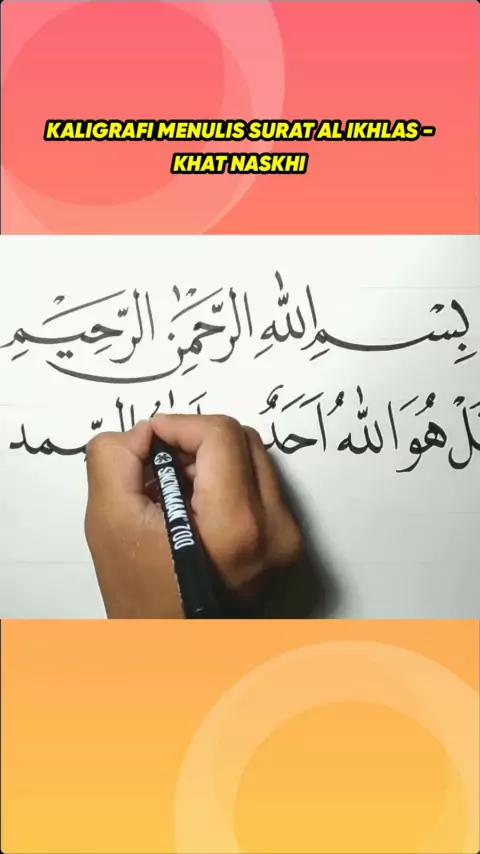 KALIGRAFI MENULIS SURAT AL IKHLAS -
KHAT NASKHI
بِسْمِ اللهِ الرَّحْمٰنِ الرَّحِيْمِ
هُوَ اللهُ اَحَدٌ الصّمد
SNOWMAN 700